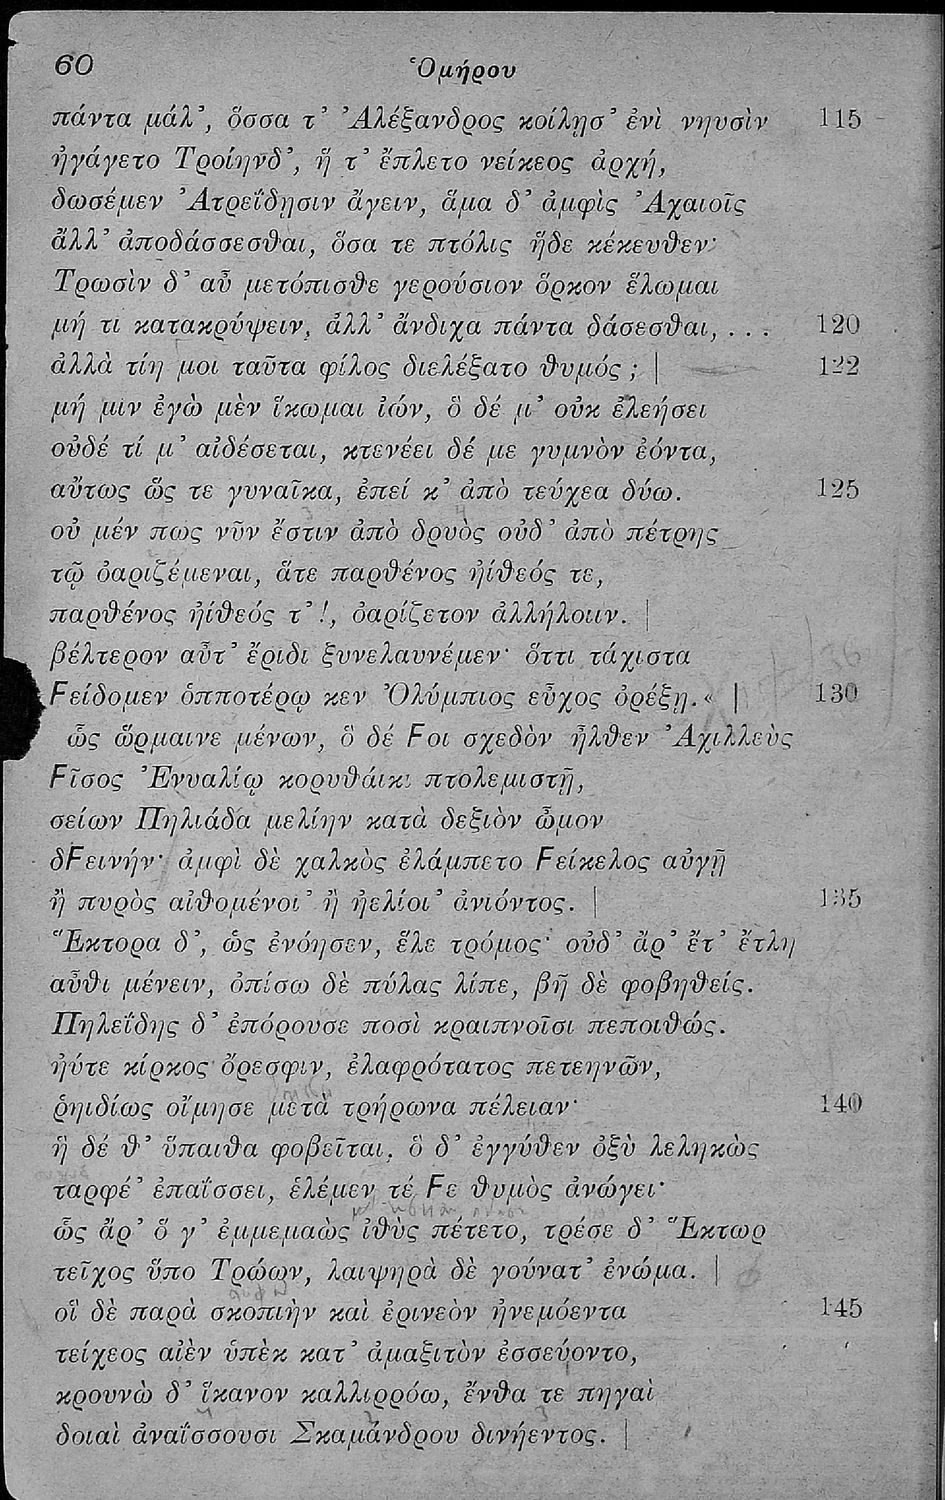 60 Ὁμήρου
πάντα μάλ’, ὅσσα τ’ Ἀλέξανδρος κοίλῃσ’ ἐνὶ νηυσὶν 115
ἠγάγετο Τροίηνδ’, ἥ τ’ ἔπλετο νείκεος ἀρχή,
δωσέμεν Ἀτρεΐδῃσιν ἄγειν, ἅμα δ’ ἀμφὶς Ἀχαιοῖς
ἄλλ’ ἀποδάσσεσθαι, ὅσα τε πτόλις ἥδε κέκευθεν·
Τρωσὶν δ’ αὖ μετόπισθε γερούσιον ὅρκον ἕλωμαι
μή τι κατακρύψειν, ἀλλ’ ἄνδιχα πάντα δάσεσθαι, . . . 120
ἀλλὰ τίη μοι ταῦτα φίλος διελέξατο θυμός; | 122
μή μιν ἐγὼ μὲν ἵκωμαι ἰών, ὃ δέ μ’ οὐκ ἐλεήσει
οὐδέ τί μ’ αἰδέσεται, κτενέει δέ με γυμνὸν ἐόντα,
αὔτως ὥς τε γυναῖκα, ἐπεί κ’ ἀπὸ τεύχεα δύω. 125
οὐ μέν πως νῦν ἔστιν ἀπὸ δρυὸς οὐδ’ ἀπὸ πέτρης
τῷ ὀαριζέμεναι, ἅτε παρθένος ἠίθεός τε,
παρθένος ἠίθεός τ’!, ὀαρίζετον ἀλλήλοιιν. |
βέλτερον αὖτ’ ἔριδι ξυνελαυνέμεν· ὅττι τάχιστα
Ϝείδομεν ὁπποτέρῳ κεν Ὀλύμπιος εὖχος ὀρέξῃ.« | 130
ὣς ὥρμαινε μένων, ὃ δέ Ϝοι σχεδὸν ἦλθεν Ἀχιλλεὺς
Ϝῖσος Ἐνυαλίῳ κορυθάικι πτολεμιστῇ,
σείων Πηλιάδα μελίην κατὰ δεξιὸν ὦμον
δϜεινήν· ἀμφὶ δὲ χαλκὸς ἐλάμπετο Ϝείκελος αὐγῇ
ἢ πυρὸς αἰθομένοι’ ἢ ἠελίοι’ ἀνιόντος. | 135
Ἕκτορα δ’, ὡς ἐνόησεν, ἕλε τρόμος· οὐδ’ ἄρ’ ἔτ’ ἔτλη
αὖθι μένειν, ὀπίσω δὲ πύλας λίπε, βῆ δὲ φοβηθείς.
Πηλεΐδης δ’ ἐπόρουσε ποσὶ κραιπνοῖσι πεποιθώς.
ἠύτε κίρκος ὄρεσφιν, ἐλαφρότατος πετεηνῶν,
ῥηιδίως οἴμησε μετὰ τρήρωνα πέλειαν· 140
ἣ δέ θ’ ὕπαιθα φοβεῖται, ὃ δ’ ἐγγύθεν ὀξὺ λεληκὼς
ταρφέ’ ἐπαΐσσει, ἑλέμεν τέ Ϝε θυμὸς ἀνώγει·
ὣς ἄρ’ ὅ γ’ ἐμμεμαὼς ἰθὺς πέτετο, τρέσε δ’ Ἕκτωρ
τεῖχος ὕπο Τρώων, λαιψηρὰ δὲ γούνατ’ ἐνώμα. |
οἳ δὲ παρὰ σκοπιὴν καὶ ἐρινεὸν ἠνεμόεντα 145
τείχεος αἰὲν ὑπὲκ κατ’ ἀμαξιτὸν ἐσσεύοντο,
κρουνὼ δ’ ἵκανον καλλιρρόω, ἔνθα τε πηγαὶ
δοιαὶ ἀναΐσσουσι Σκαμάνδρου δινήεντος. |